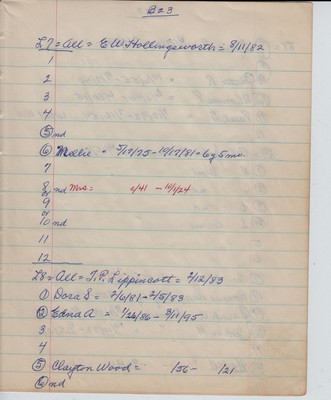 B=3
L7=All= E.W. Hollingsworth= 8/11/82
1
2
3
4
⑤nd
⑥ Mollie = 5/17/75-10/17/81=6y 5mo.
7
8 nd Mrs= 6/41 - 10/1/24
or
9
or
10 nd
11
12
L8=All= T.P. Lippincott= 2/12/83
① Dora S= 2/6/81-2/5/83
② Edna A= 1/26/86- 9/11/95
3
4
⑤ Clayton Wood= /56- /21
⑥nd